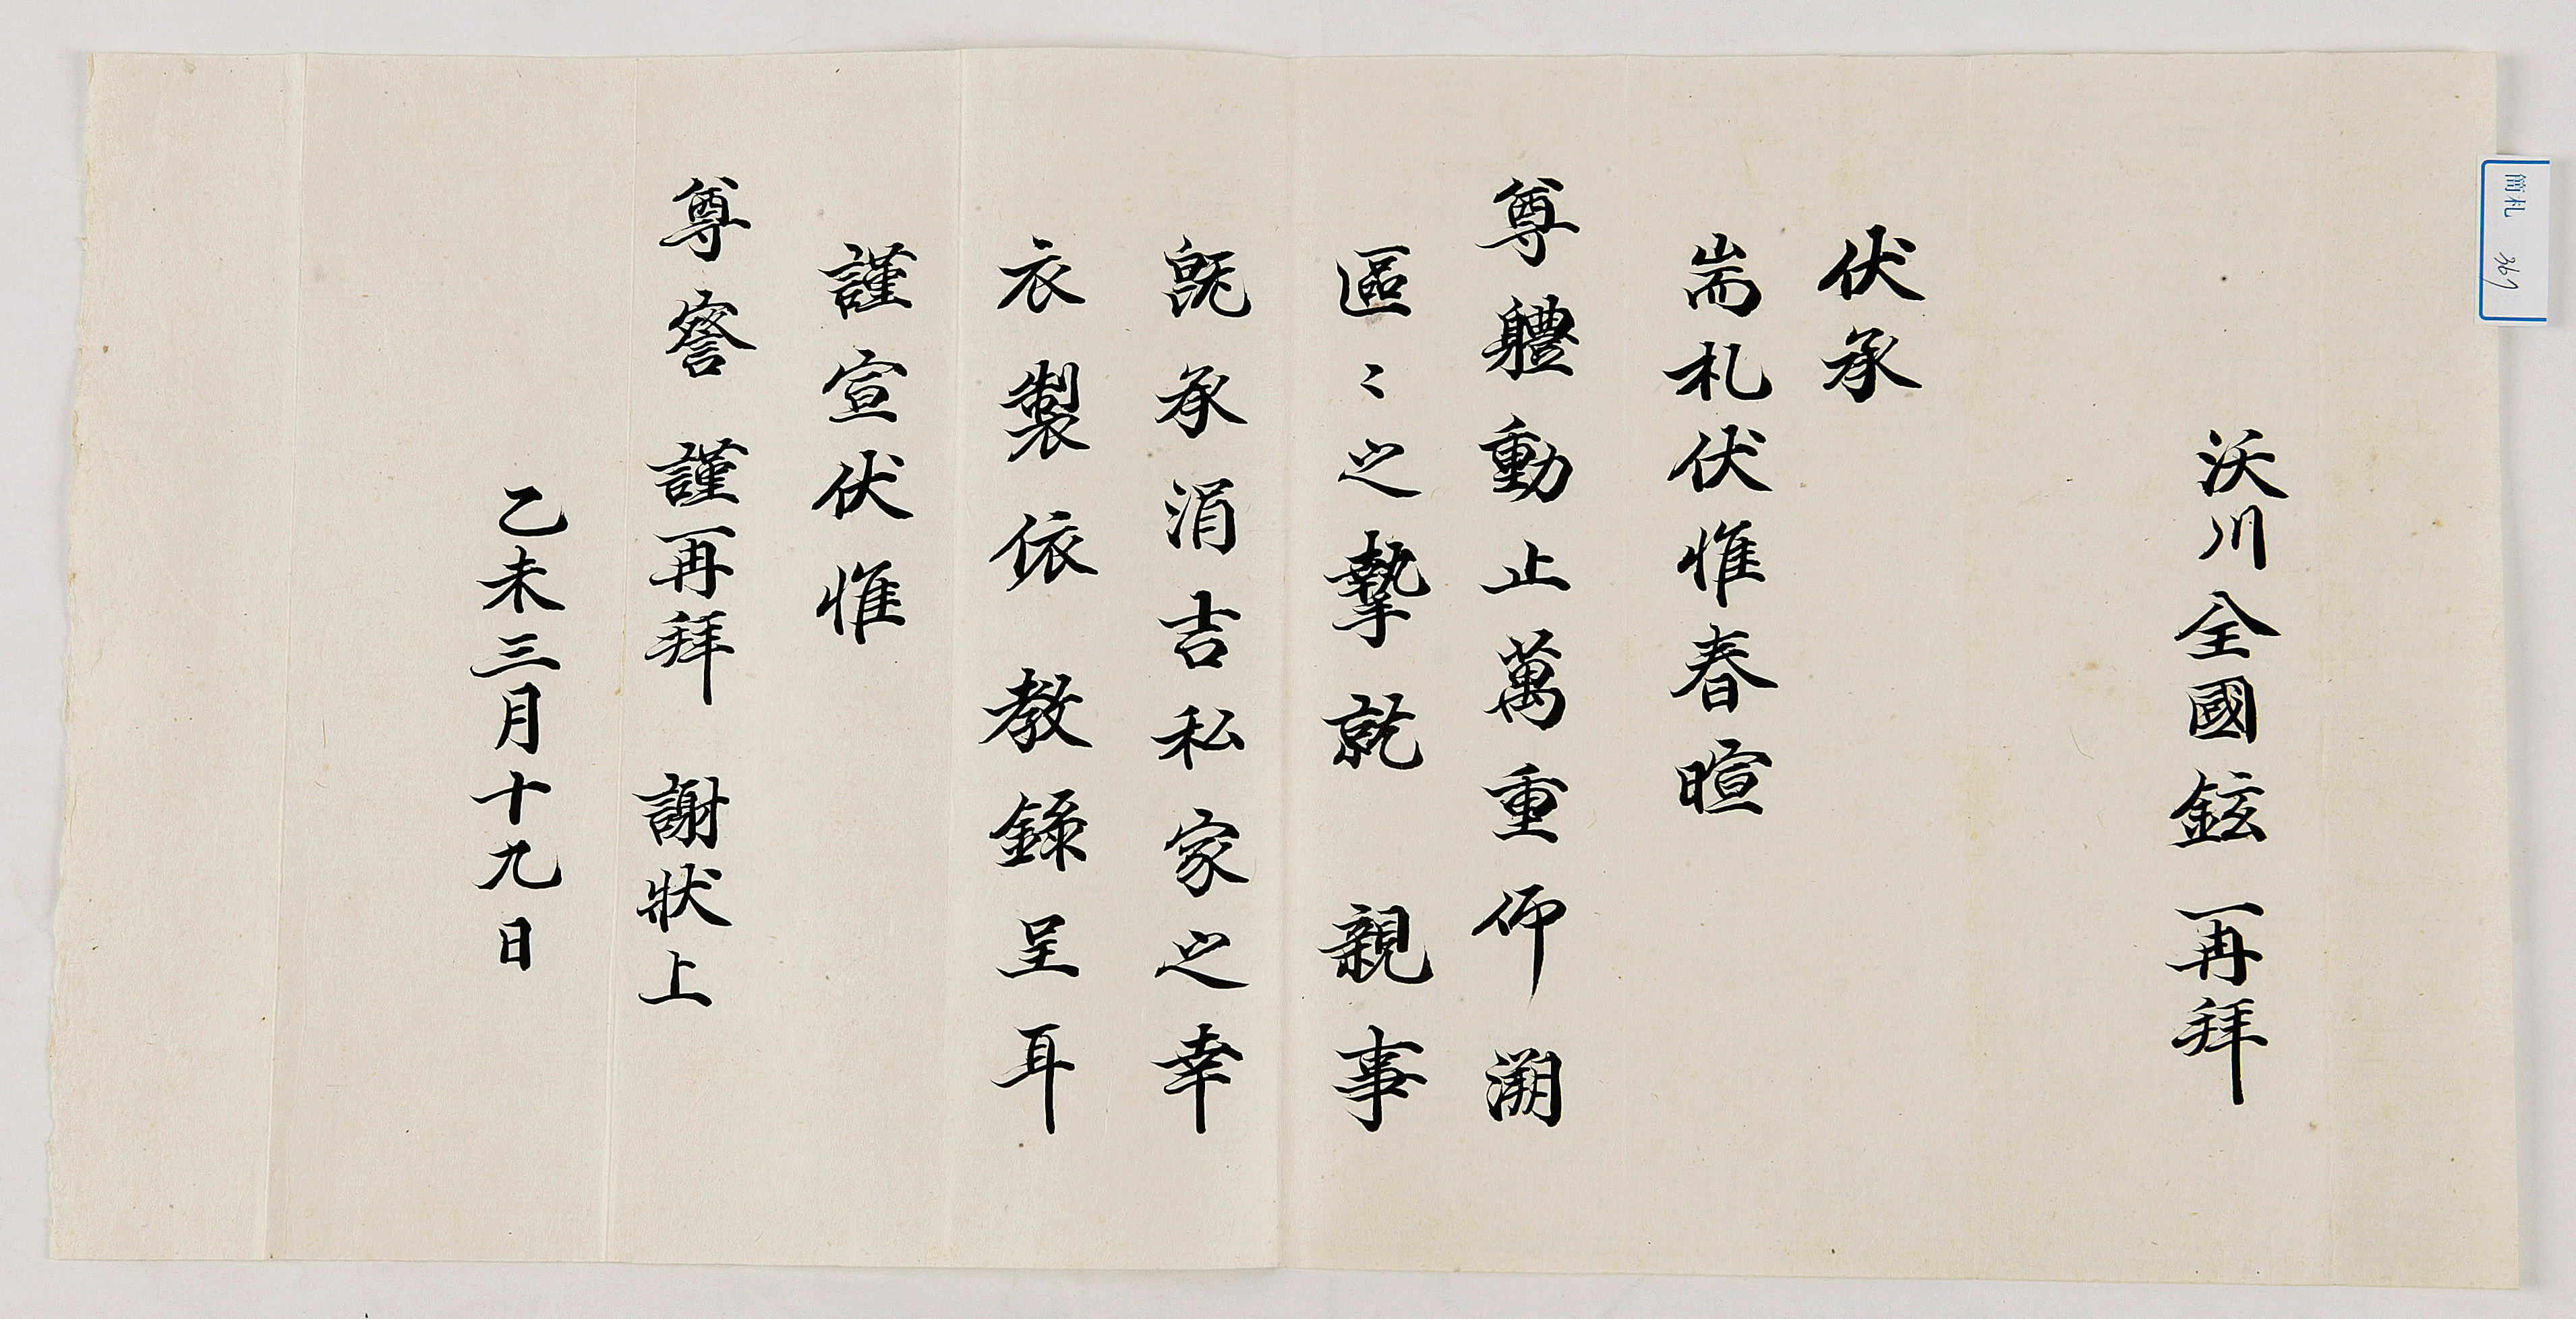 沃川全國鉉 再拜
伏承
耑札伏惟春暄
尊體動止萬重仰溯
區〻之摯就 親事
旣承涓吉私家之幸
衣製依 教錄呈耳
謹宣伏惟
尊詧 謹再拜 謝狀上
乙未三月十九日
簡札 367